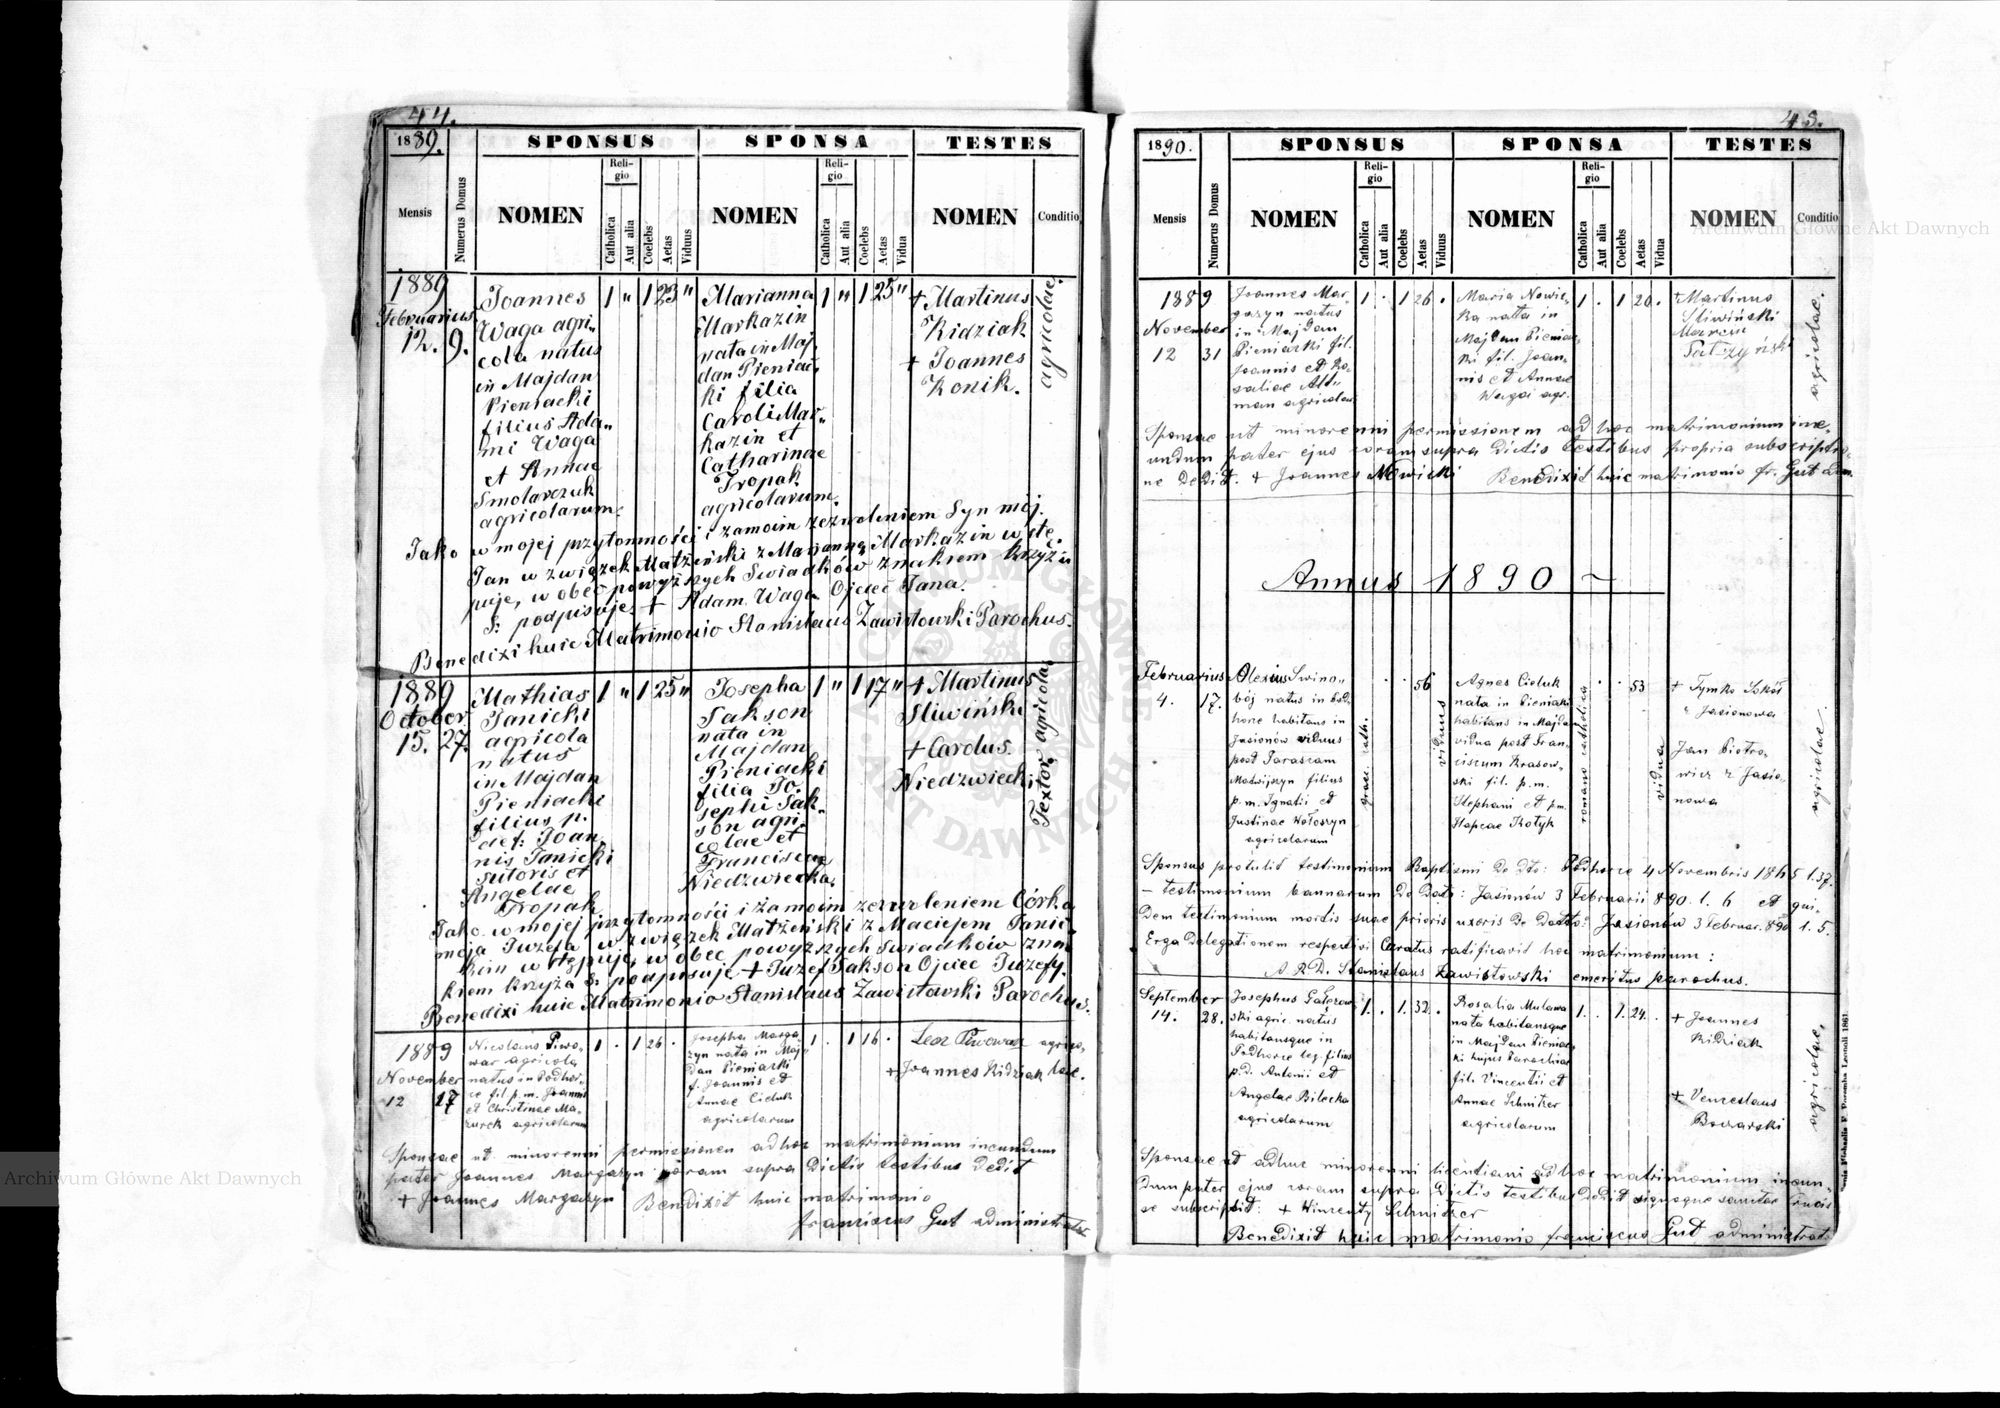 44.
1889.
SPONSUS
SPONSA
TESTES
Mensis
Numerus Domus
NOMEN
Religio
Catholica
Aut alia
Coelebs
Aetas
Viduus
NOMEN
Religio
Catholica
Aut alia
Coelebs
Aetas
Vidua
NOMEN
Conditio
1889
Februarius
12. 9.
Joannes
Waga agri-
cola natus
in Majdan
Pieniacki
filius Ada-
mi Waga
et Annae
Smolarczuk
agricolarum.
1 " 1 23 "
Marianna
Markazin
nata in Maj-
dan Pieniac-
ki filia
Caroli Mar-
kazin et
Catharinae
Tropak
agricolarum.
1 " 1 25 "
+ Martinus
Kidziak
+ Joannes
Konik.
agricolae.
Jako w mojej przytomności i zamoim zezwoleniem Syn mój
Jan w związek Małżeński z Marjanną Markazin wstę-
puje, w obec powyższych Swiadków znakiem krzyża
S: podpisuje + Adam Waga Ojciec Jana.
Benedixi huic Matrimonio Stanislaus Zawistowski Parochus.
1889
October
15. 27.
Mathias
Janicki
agricola
natus
in Majdan
Pieniacki
filius p.
def: Joan-
nis Janicki
sutoris et
Angelae
Tropak
1 " 1 25 "
Josepha
Sakson
nata in
Majdan
Pieniacki
filia Jo-
sephi Sak-
son agri-
colae et
Francisca
Niedzwiecka.
1 " 1 17 "
+ Martinus
Sliwiński
+ Carolus
Niedzwiecki
Textor, agricola
Jako w mojej przytomności i zamoim zezwoleniem Córka
moja Juzefa w związek Małżeński z Maciejem Janic-
kim wstępuje, w obec powyższych Swiadków zna-
kiem krzyża S: podpisuje + Juzef Sakson Ojciec Juzefy.
Benedixi huic Matrimonio Stanislaus Zawistowski Parochus.
1889
November
12 17
Nicolaus Piwo-
war agricola
natus in Podhor-
ce fil. p. m. Joannis
et Christinae Ma-
zurek agricolarum
1 . 1 26 .
Josepha Marga-
zyn nata in Maj-
dan Pieniacki
f. Joannis et
Annae Cieluk
agricolarum
1 . 1 16 .
Leon Piwowar
+ Joannes Kidziak
agrico-
lae.
Sponsae ut minorenni permissionem ad hoc matrimonium ineundum
pater Joannes Margazyn coram supra dictis testibus dedit
+ Joannes Margazyn Benedixit huic matrimonio
franciscus Gut administrator
45.
1890.
SPONSUS
SPONSA
TESTES
Mensis
Numerus Domus
NOMEN
Religio
Catholica
Aut alia
Coelebs
Aetas
Viduus
NOMEN
Religio
Catholica
Aut alia
Coelebs
Aetas
Vidua
NOMEN
Conditio
1889
November
12 31
Joannes Mar-
gazyn natus
in Majdan
Pieniacki fil.
Joannis et Ro-
saliae Alt-
man agricolarum
1 . 1 26 .
Maria Nowic-
ka nata in
Majdan Pieniac-
ki fil. Joan-
nis et Annae
Waga agr.
1 . 1 20 .
+ Martinus
Sliwiński
Marcin
agricolae.
Sponsae ut minorenni permissionem ad hoc matrimonium ine-
undum pater ejus coram supra dictis testibus propria subscriptio-
ne dedit. + Joannes Nowicki Benedixit huic matrimonio fr. Gut adm.
Annus 1890
Februarius
4. 17.
Alexius Swino-
bój natus in Pod-
horce habitans in
Jasionów viduus
post Parascam
Matwijszyn filius
p. m. Ignatii et
Justinae Wołoszyn
agricolarum
graec. cath.
56
viduus
Agnes Cieluk
nata in Pieniaki
habitans in Majdan
vidua post Fran-
ciscum Krasow-
ski fil. p. m.
Stephani et p. m.
Hapcae Kotyk
romano catholica
53
vidua
+ Tymko Sokół
" Jasionowa
Jan Pietro-
wicz z Jasio-
nowa
agricolae.
Sponsus protulit testimonium Baptismi de dto: Podhorce 4 Novembris 1885 l.37.
- testimonium bannarum de Dato: Jasionów 3 Februarii 890. l. 6 et qui-
dem testimonium mortis suae prioris uxoris de Datto: Jasionów 3 Februar. 890 l. 5.
Erga Delegationem respectivi Curatus ratificavit hoc matrimonium:
A. R. D. Stanislaus Zawistowski emeritus parochus.
September
14. 28.
Josephus Gąterow-
ski agric. natus
habitansque in
Podhorce leg. filius
p. d. Antonii et
Angelae Bilecka
agricolarum
1. . 1. 32. .
Rosalia Mulawa
nata habitansque
in Majdan Pieniac-
ki hujus Parochiae
fil. Vincentii et
Annae Schnitzer
agricolarum
1. . 1. 24. .
+ Joannes
Kidziak
+ Venceslaus
Bociarski
agricolae.
Sponsae ut adhuc minorenni licentiam ad hoc matrimonium ineun-
dum pater ejus coram supra dictis testibus dedit signoque sanctae Crucis
se subscripsit: + Wincenty Schnitzer
Benedixit huic matrimonio franciscus Gut administrat.
Archiwum Główne Akt Dawnych
Archiwum Główne Akt Dawnych
ARCHIWUM GŁÓWNE AKT DAWNYCH